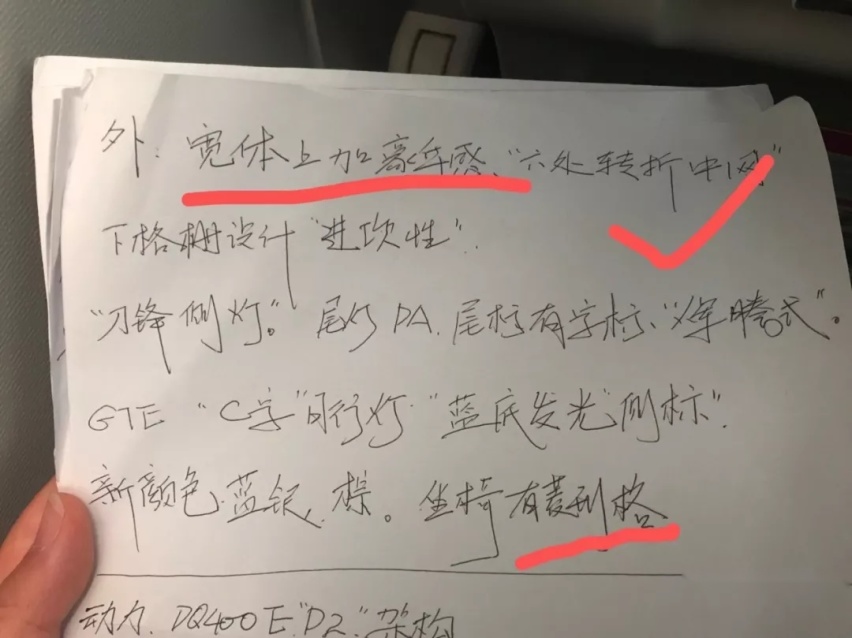 外：宽体上加豪华感、"六处转折中网"
下格栅设计"进攻性"．
"刀锋侧灯"。尾灯PA．尾标有字标、"迈腾式"。
GTE "C字"日行灯 "蓝底发光"侧标"．
新颜色．蓝银，棕。坐椅有菱形格
动力．DQ400E"P2"架构